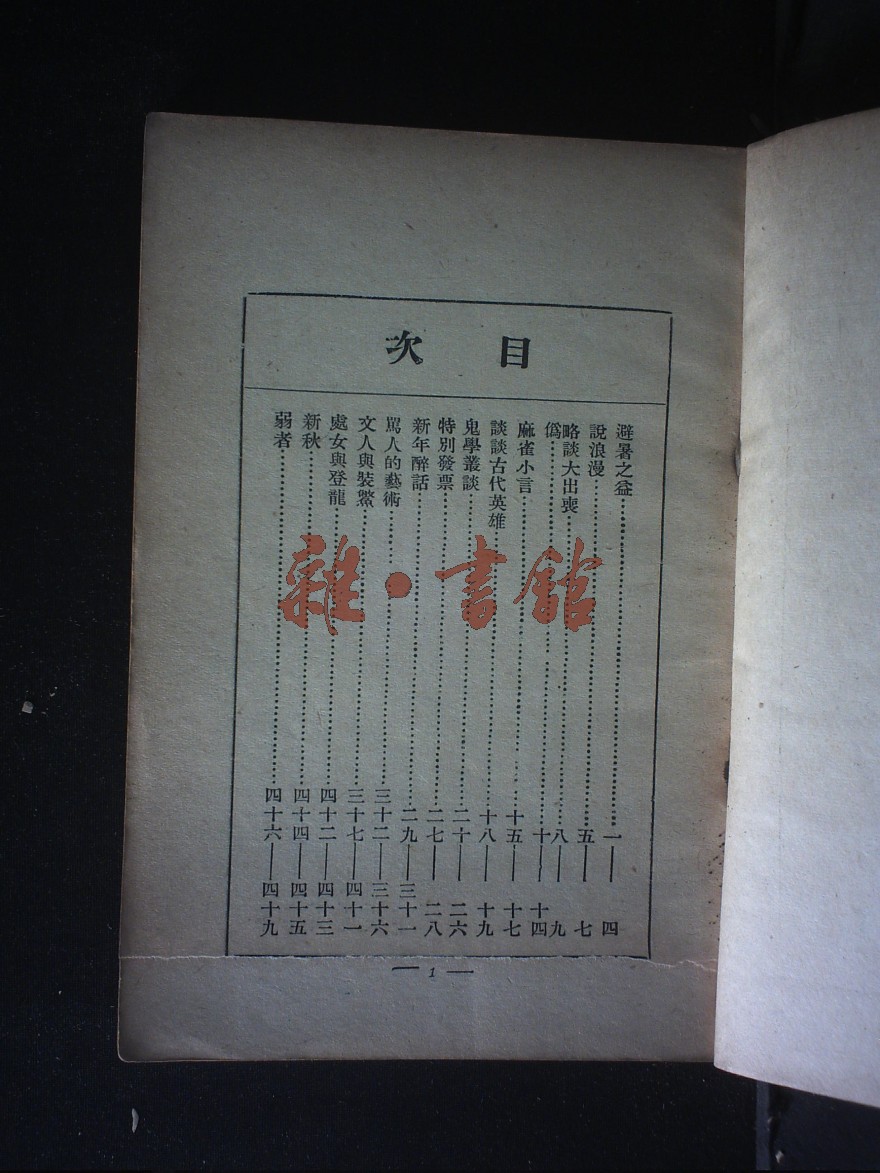 目次
避暑之益⋯⋯一——四
說浪漫⋯⋯五——七
略談大出喪⋯⋯八——九
僞⋯⋯十——十四
麻雀小言⋯⋯十五——十七
談談古代英雄⋯⋯十八——十九
鬼學叢談⋯⋯二十——二六
特別發票⋯⋯二七——二八
新年醉話⋯⋯二九——三十一
罵人的藝術⋯⋯三十二——三十六
文人與裝鱉⋯⋯三十七——四十一
處女與登龍⋯⋯四十二——四十三
新秋⋯⋯四十四——四十五
弱者⋯⋯四十六——四十九
— 1 —
雜·書館